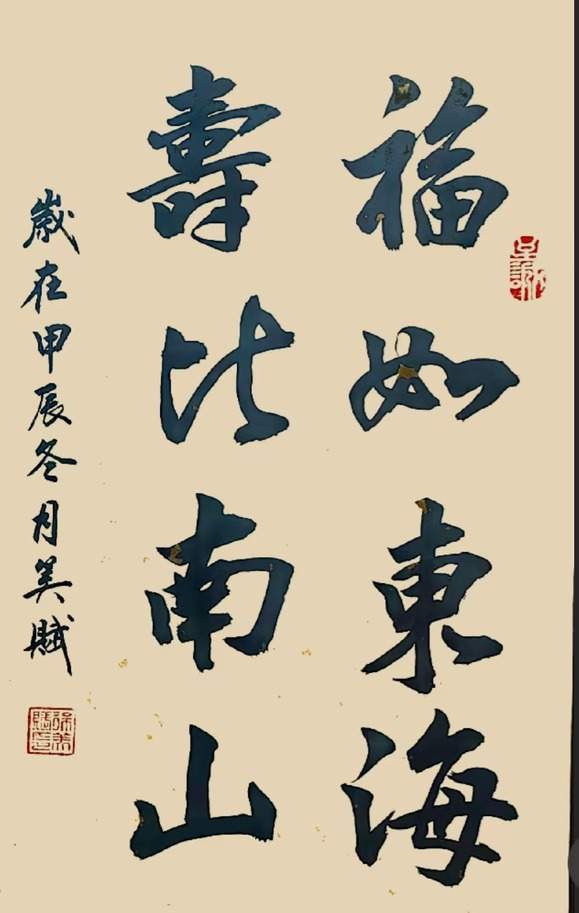 福如東海
壽比南山
歲在甲辰冬月美賦